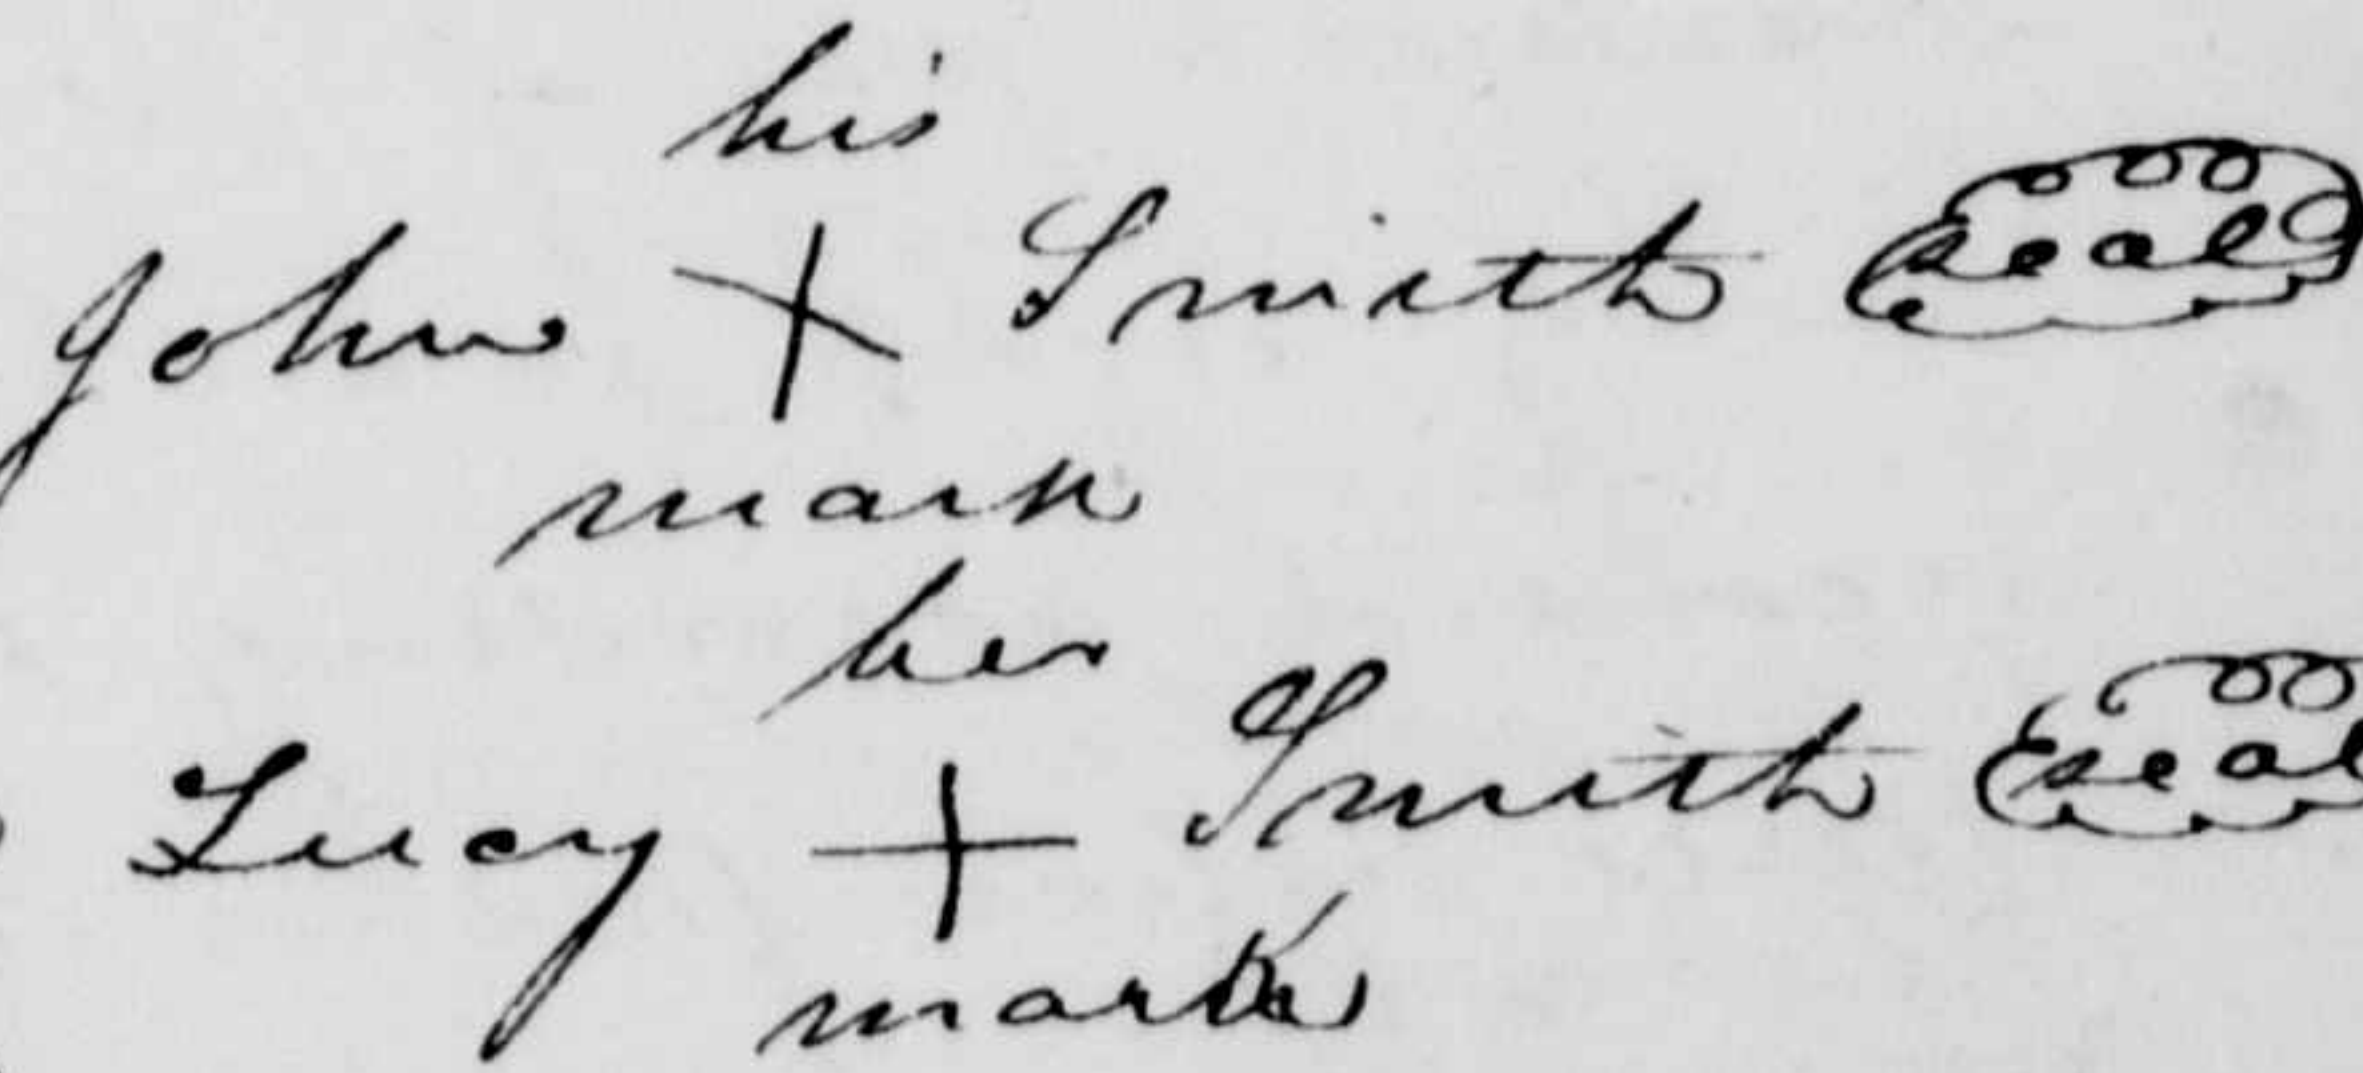 his
John X Smith Seal
mark
her
Lucy + Smith Seal
mark